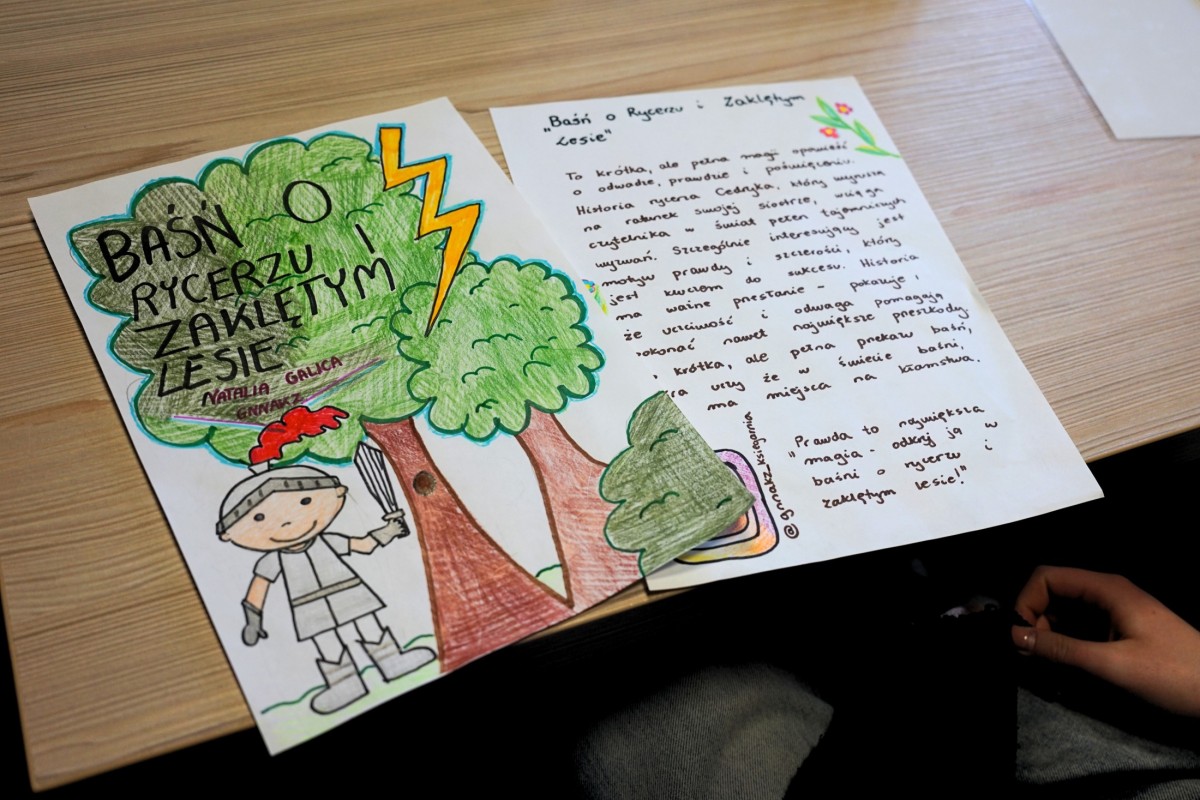 BAŚŃ O
RYCERZU I
ZAKLĘTYM
LESIE
NATALIA GALICA
GNNAKZ
"Baśń o Rycerzu i Zaklętym
Lesie"
To krótka, ale pełna magii opowieść
o odwadze, prawdzie i poświęceniu.
Historia rycerza Cedryka, który wyrusza
na ratunek swojej siostrze, wciąga
czytelnika w świat pełen tajemniczych
wyzwań. Szczególnie interesujący jest
motyw prawdy i szczerości, który
jest kluczem do sukcesu. Historia
ma ważne przesłanie - pokazuje,
że uczciwość i odwaga pomagają
okonać nawet największe przeszkody.
krótka, ale pełna przekazu baśń,
ra uczy że w świecie baśni,
ma miejsca na kłamstwa.
"Prawda to największa
magia - odkryj ją w
baśni o rycerzu i
zaklętym lesie!"
@gnnakz.księgarnia